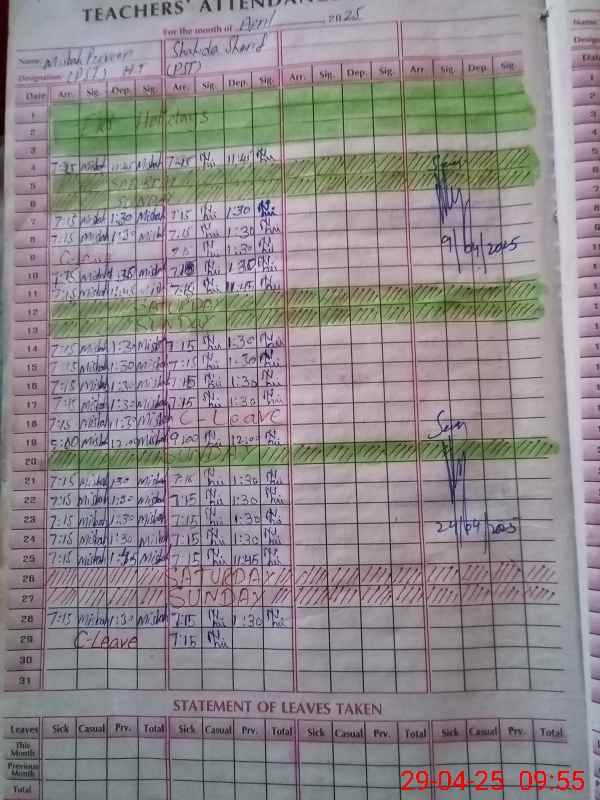 TEACHERS' ATTENDANCE
For the month of April 2025
Name Misbah Parveen Shahida Sharif
Designation (PST) HT (PST)
Date Arr. Sig. Dep. Sig. Arr. Sig. Dep. Sig. Arr. Sig. Dep. Sig. Arr. Sig. Dep. Sig.
1
2 Holidays
3
4 7:15 Misbah 11:45 Misbah 7:15 11:45
5
6 SUNDAY
7 7:15 Misbah 1:30 Misbah 7:15 1:30
8 7:15 Misbah 1:30 Misbah 7:15 1:30
9 C-Leave 1:30 9/04/2025
10 7:15 Misbah 1:30 Misbah 7:15 1:30
11 7:15 Misbah 7:15 11:45
12 SATURDAY
13 SUNDAY
14 7:15 Misbah 1:30 Misbah 7:15 1:30
15 7:15 Misbah 1:30 Misbah 7:15 1:30
16 7:15 Misbah 1:30 Misbah 7:15 1:30
17 7:15 Misbah 1:30 Misbah 7:15 1:30
18 7:15 Misbah 1:30 Misbah C-Leave
19 9:00 Misbah 12:00 Misbah 9:00 12:00
20 SUNDAY
21 7:15 Misbah 1:30 Misbah 7:15 1:30
22 7:15 Misbah 1:30 Misbah 7:15 1:30
23 7:15 Misbah 1:30 Misbah 7:15 1:30 24/04/2025
24 7:15 Misbah 1:30 Misbah 7:15 1:30
25 7:15 Misbah Misbah 7:15 11:45
26 SATURDAY
27 SUNDAY
28 7:15 Misbah 1:30 Misbah 7:15 1:30
29 C-Leave 7:15
30
31
STATEMENT OF LEAVES TAKEN
Leaves Sick Casual Prv. Total Sick Casual Prv. Total Sick Casual Prv. Total Sick Casual Prv. Total
This Month
Previous Month
Total
29-04-25 09:55